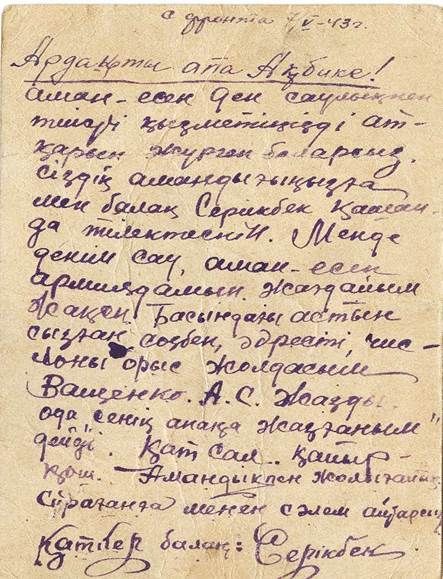 с фронта 7/V-43г.
Ардақты апа Ақбике!
аман-есен ден саулықпен
тиісті қызметіңізді ат-
қарып жүрген боларсыз.
Сіздің амандығыңызға
мен балаң Серикбек қашан-
да тілектеспін. Менде
денім сау, аман-есен
армиядамын. Жағдайым
жақсы. Басындағы астын
сызған сөзбен, әдресті, чис-
лоны орыс жолдасым
Ващенко. А.С. Жазды.
ода сенің апаңа жазғаным"
дейді. Қат сал.. қайыр-
қош. Амандықпен жолығайық
Сұрағанға менен сәлем айтарсың
Қат жазған балаң: Серікбек